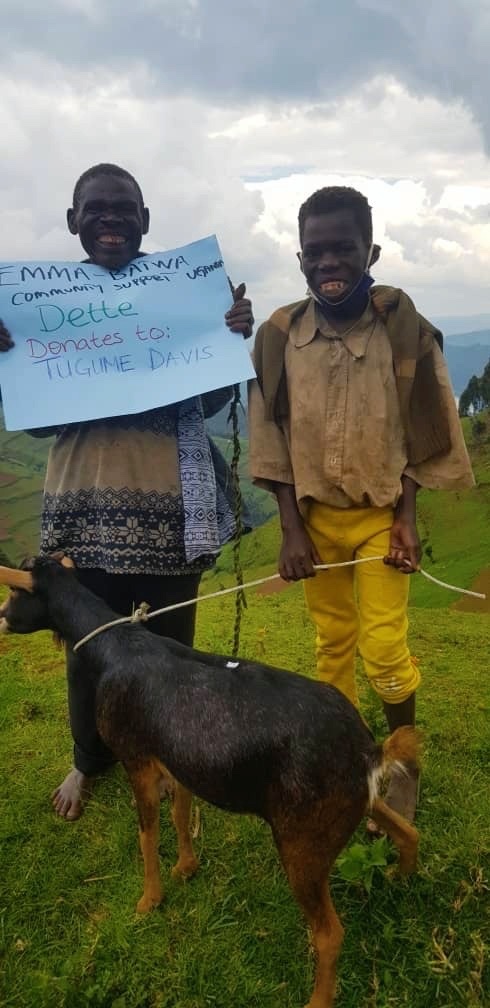 EMMA-BATWA
COMMUNITY SUPPORT UGANDA
Dette
Donates to:
TUGUME DAVIS